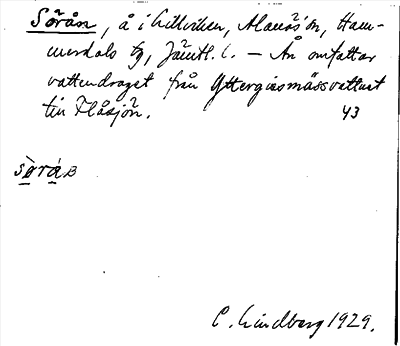 Sörån, å i Lillviken, Alanäs sn, Ham-
merdals tg, Jämtl. l. – Ån omfattar
vattendraget från Yttergissmässvattnet
till Flåsjön. 43
C. Lindberg 1929.